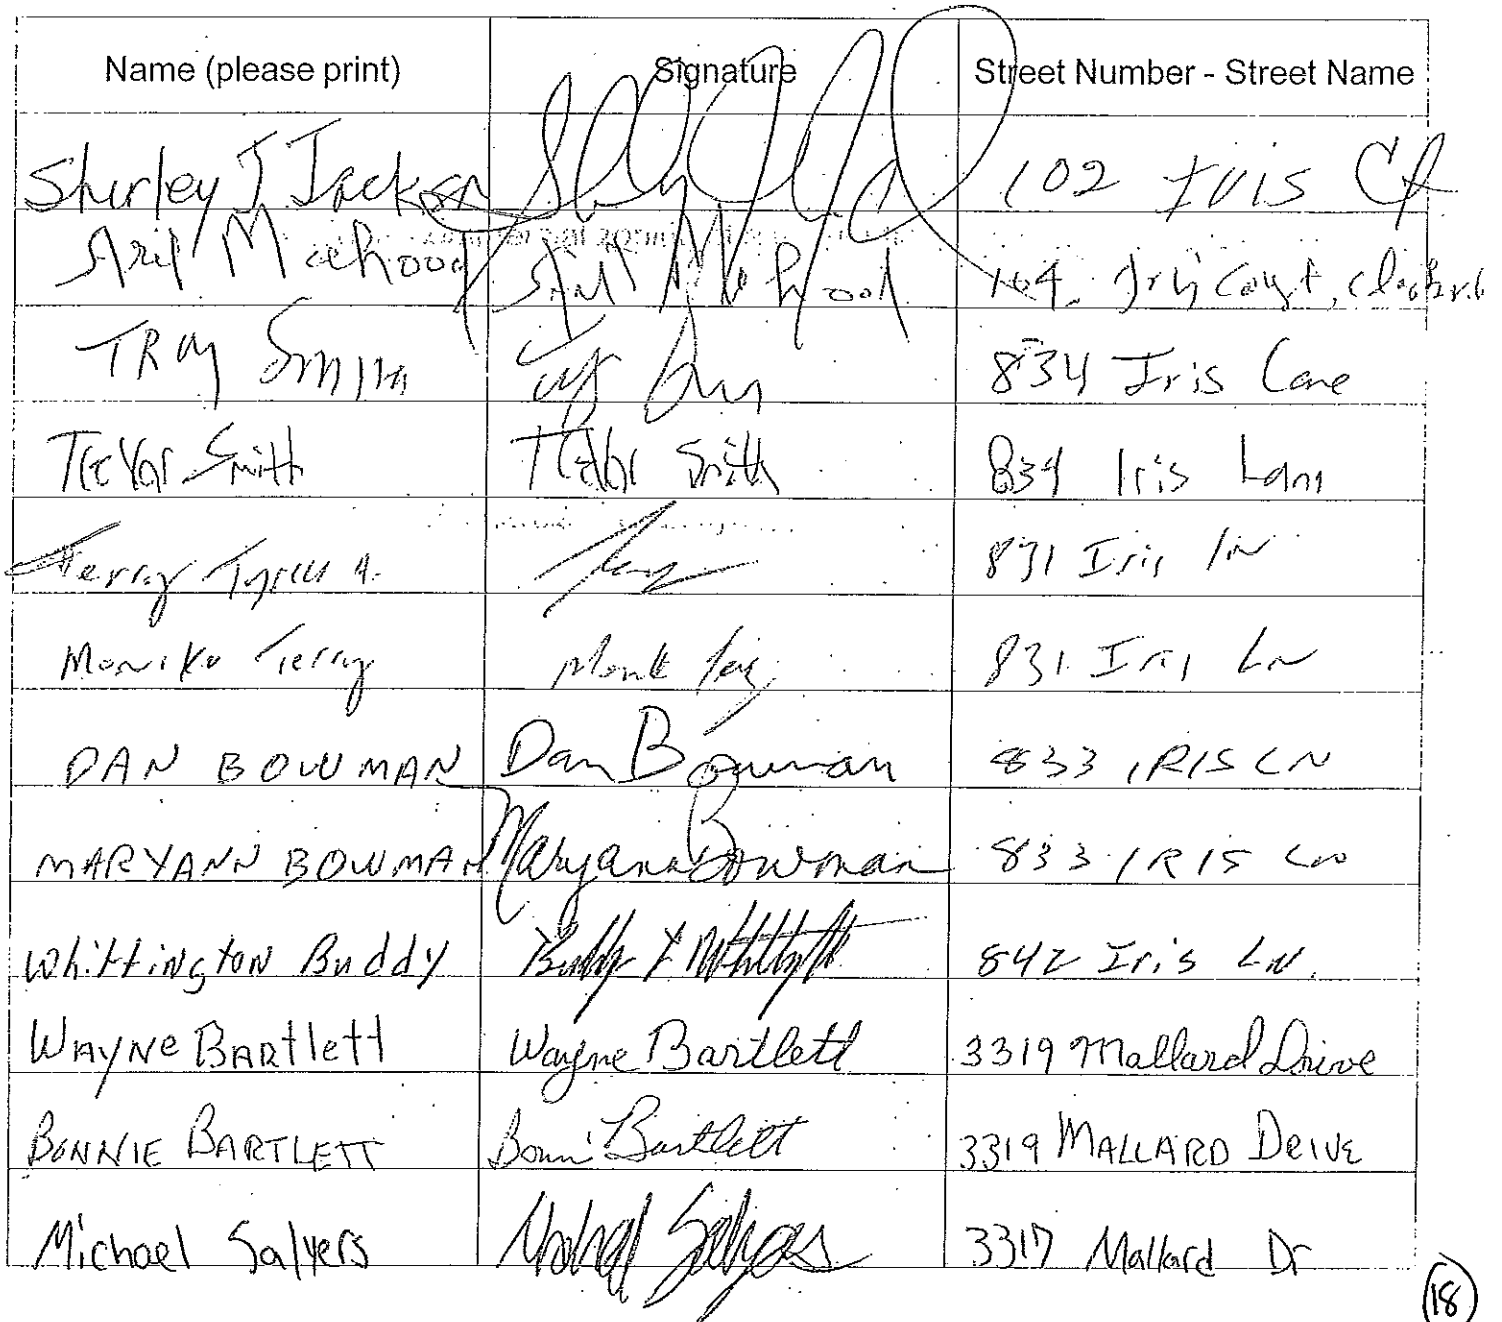 Name (please print) Signature Street Number - Street Name
Shirley J Jackson 102 Iris Ct
Mahood 104 Iris Court,
TROY SMITH 834 Iris Lane
Trevor Smith Trevor Smith 834 Iris Lane
Terry 831 Iris LN
Monika Terry 831 Iris LN
DAN BOWMAN Dan Bowman 833 IRIS LN
MARYANN BOWMAN Maryann Bowman 833 IRIS LN
Whittington Buddy 842 Iris LN.
WAYNE BARtlett Wayne Bartlett 3319 Mallard Drive
BONNIE BARTLETT Bonni Bartlett 3319 MALLARD DRIVE
Michael Salyers Michael Salyers 3317 Mallard Dr
18